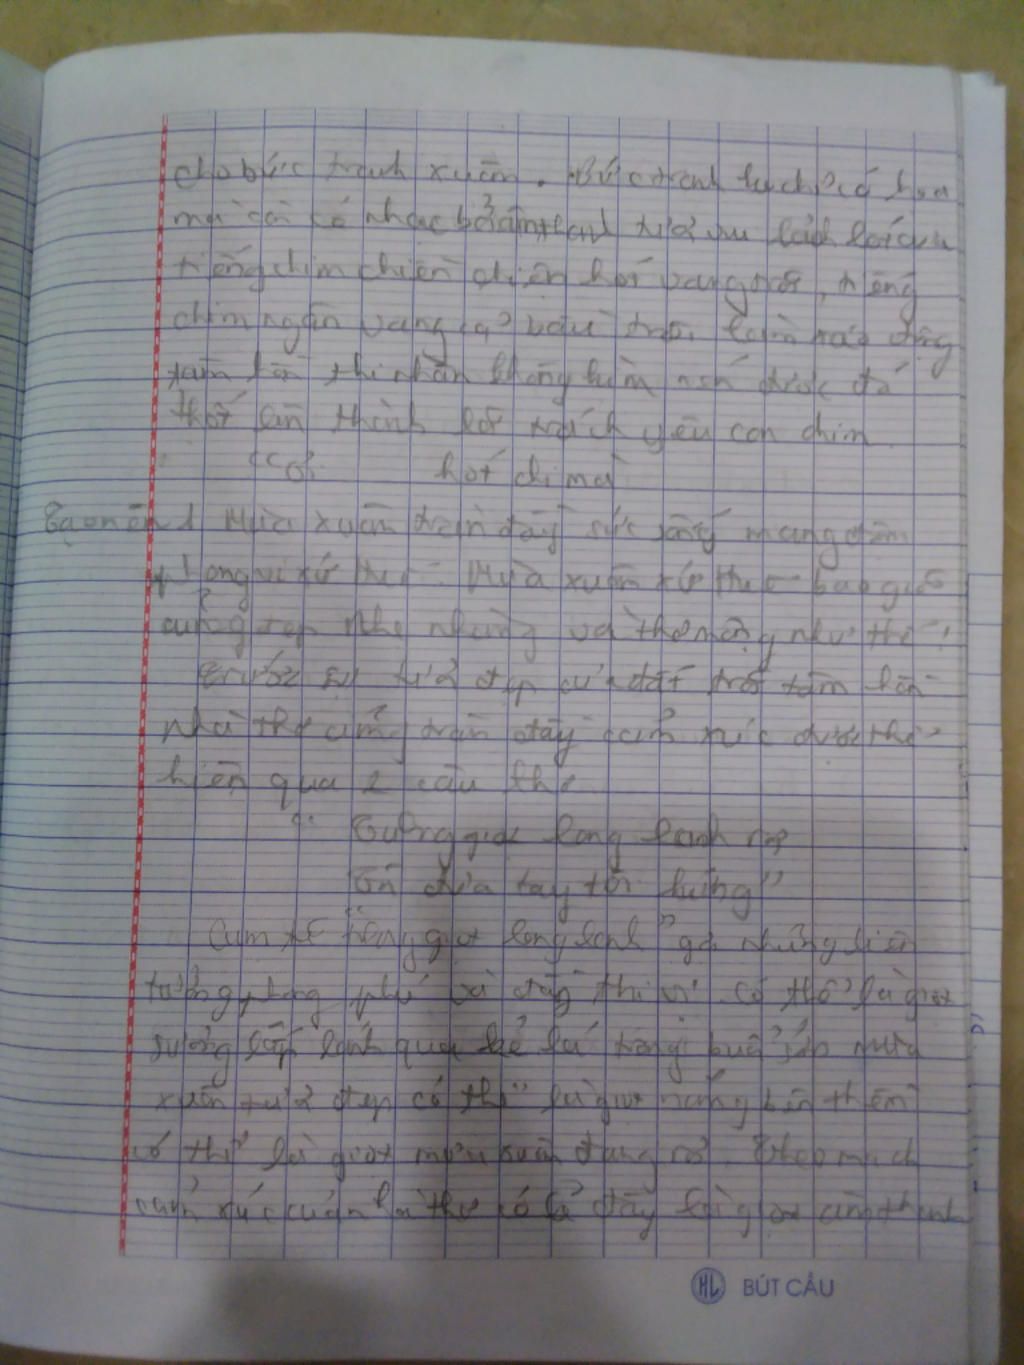 cho bức tranh xuân. Bức tranh có họa
mà còn có nhạc bởi âm thanh của
tiếng chim chiền chiện hót vang trời, tiếng
chim ngân vang cả bầu trời làm động
tâm hồn thi nhân không
thốt lên thành lời trách yêu con chim
hót chi mà
Tạo nên 1 mùa xuân tràn đầy sức sống mang đậm
phong vị xứ Huế. Mùa xuân xứ Huế bao giờ
cũng đẹp nhẹ nhàng và thơ mộng như thế!
Trước sự đẹp của đất trời tâm hồn
nhà thơ cũng tràn đầy cảm xúc được thể
hiện qua 2 câu thơ
": Từng giọt long lanh rơi
Tôi đưa tay tôi hứng"
Cụm từ "từng giọt long lanh" gợi những liên
tưởng phong phú và đầy thi vị. Có thể là giọt
sương lấp lánh qua kẽ lá trong buổi sáng mùa
xuân đẹp có thể là giọt nắng bên thềm
có thể là giọt mưa xuân đang rơi. Theo mạch
cảm xúc của nhà thơ có lẽ đây là giọt âm thanh
HL BÚT CÂU